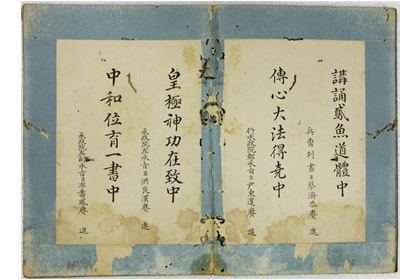 講誦鳶魚道體中
兵曹判書臣蔡濟恭賡 進
傳心大法得堯中
行承政院都承旨臣尹東暹賡 進
皇極神功在致中
承政院左承旨臣洪良漢賡 進
中和位育一書中
承政院 副承旨臣李壽鳳賡 進